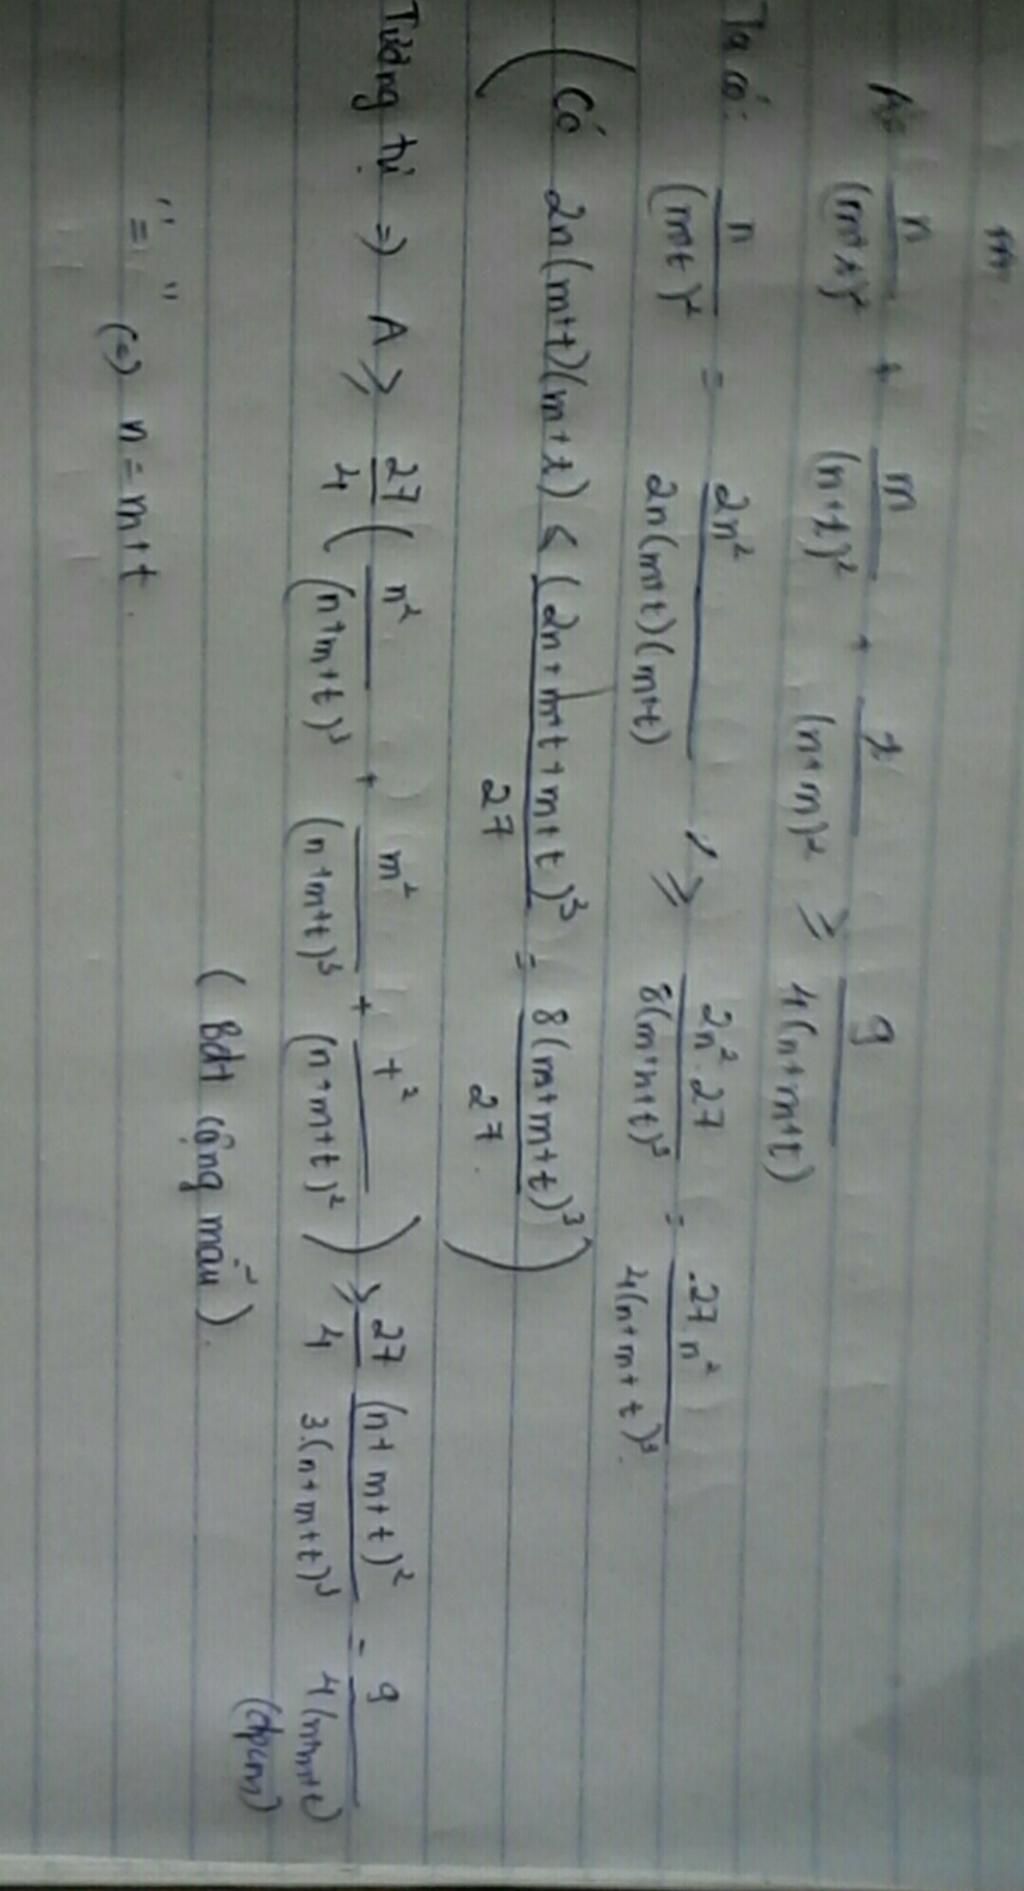 m
A = n/(m+t)² + m/(n+t)² + t/(n+m)² ≥ 9/4(n+m+t)
Ta có: n/(m+t)² = 2n²/2n(m+t)(m+t) ≥ 2n².27/8(m+n+t)³ = 27n²/4(n+m+t)³.
(Có 2n(m+t)(m+t) ≤ (2n+m+t+m+t)³/27 = 8(m+m+t)³/27.)
Tương tự => A ≥ 27/4 (n²/(n+m+t)³ + m²/(n+m+t)³ + t²/(n+m+t)²) ≥ 27/4 (n+m+t)²/3.(n+m+t)³ = 9/4(n+m+t)
(đpcm)
(Bđt cộng mẫu).
"=" (=) n = m+t.